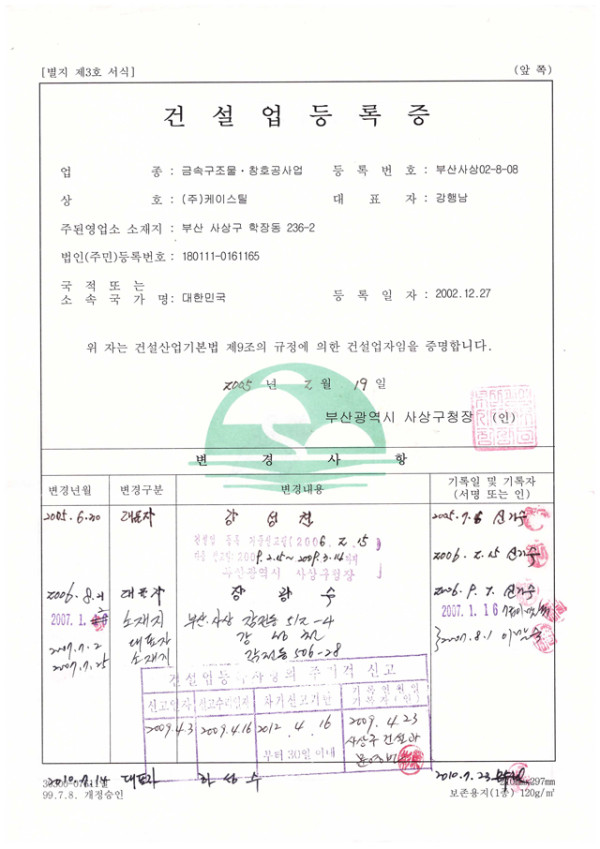 [별지 제3호 서식]
(앞 쪽)
건 설 업 등 록 증
업 종 : 금속구조물·창호공사업
등 록 번 호 : 부산사상02-8-08
상 호 : (주)케이스틸
대 표 자 : 강행남
주된영업소 소재지 : 부산 사상구 학장동 236-2
법인(주민)등록번호 : 180111-0161165
국 적 또 는
소 속 국 가 명 : 대한민국
등 록 일 자 : 2002.12.27
위 자는 건설산업기본법 제9조의 규정에 의한 건설업자임을 증명합니다.
2005 년 2 월 19 일
부산광역시 사상구청장 (인)
변 경 사 항
변경년월 변경구분 변경내용 기록일 및 기록자
(서명 또는 인)
2005.6.30 대표자 강
2005.7.6
2006. 2. 15
2009.2.15~2009.3.14까지
2006. 2. 15
부산광역시 사상구청장
2006. 8. 대표자 강 광 수 2006. 9. 7.
2007. 1. 소재지 부산 사상 감전동 512-4 2007. 1. 16
2007.7.2 대표자 강
2007.8.1
2007.7.25 소재지 감전동 506-28
건설업등록사항의 주기적 신고
신고일자 신고수리일자 차기신고기한 기록연월일
기록자(인)
2009.4.3 2009.4.16 2012. 4. 16 2009. 4. 23
부터 30일 이내 사상구 건설과
2010.7.14 대표자 하 상 수 2010. 7. 23
99.7.8. 개정승인
보존용지(1종) 120g/㎡